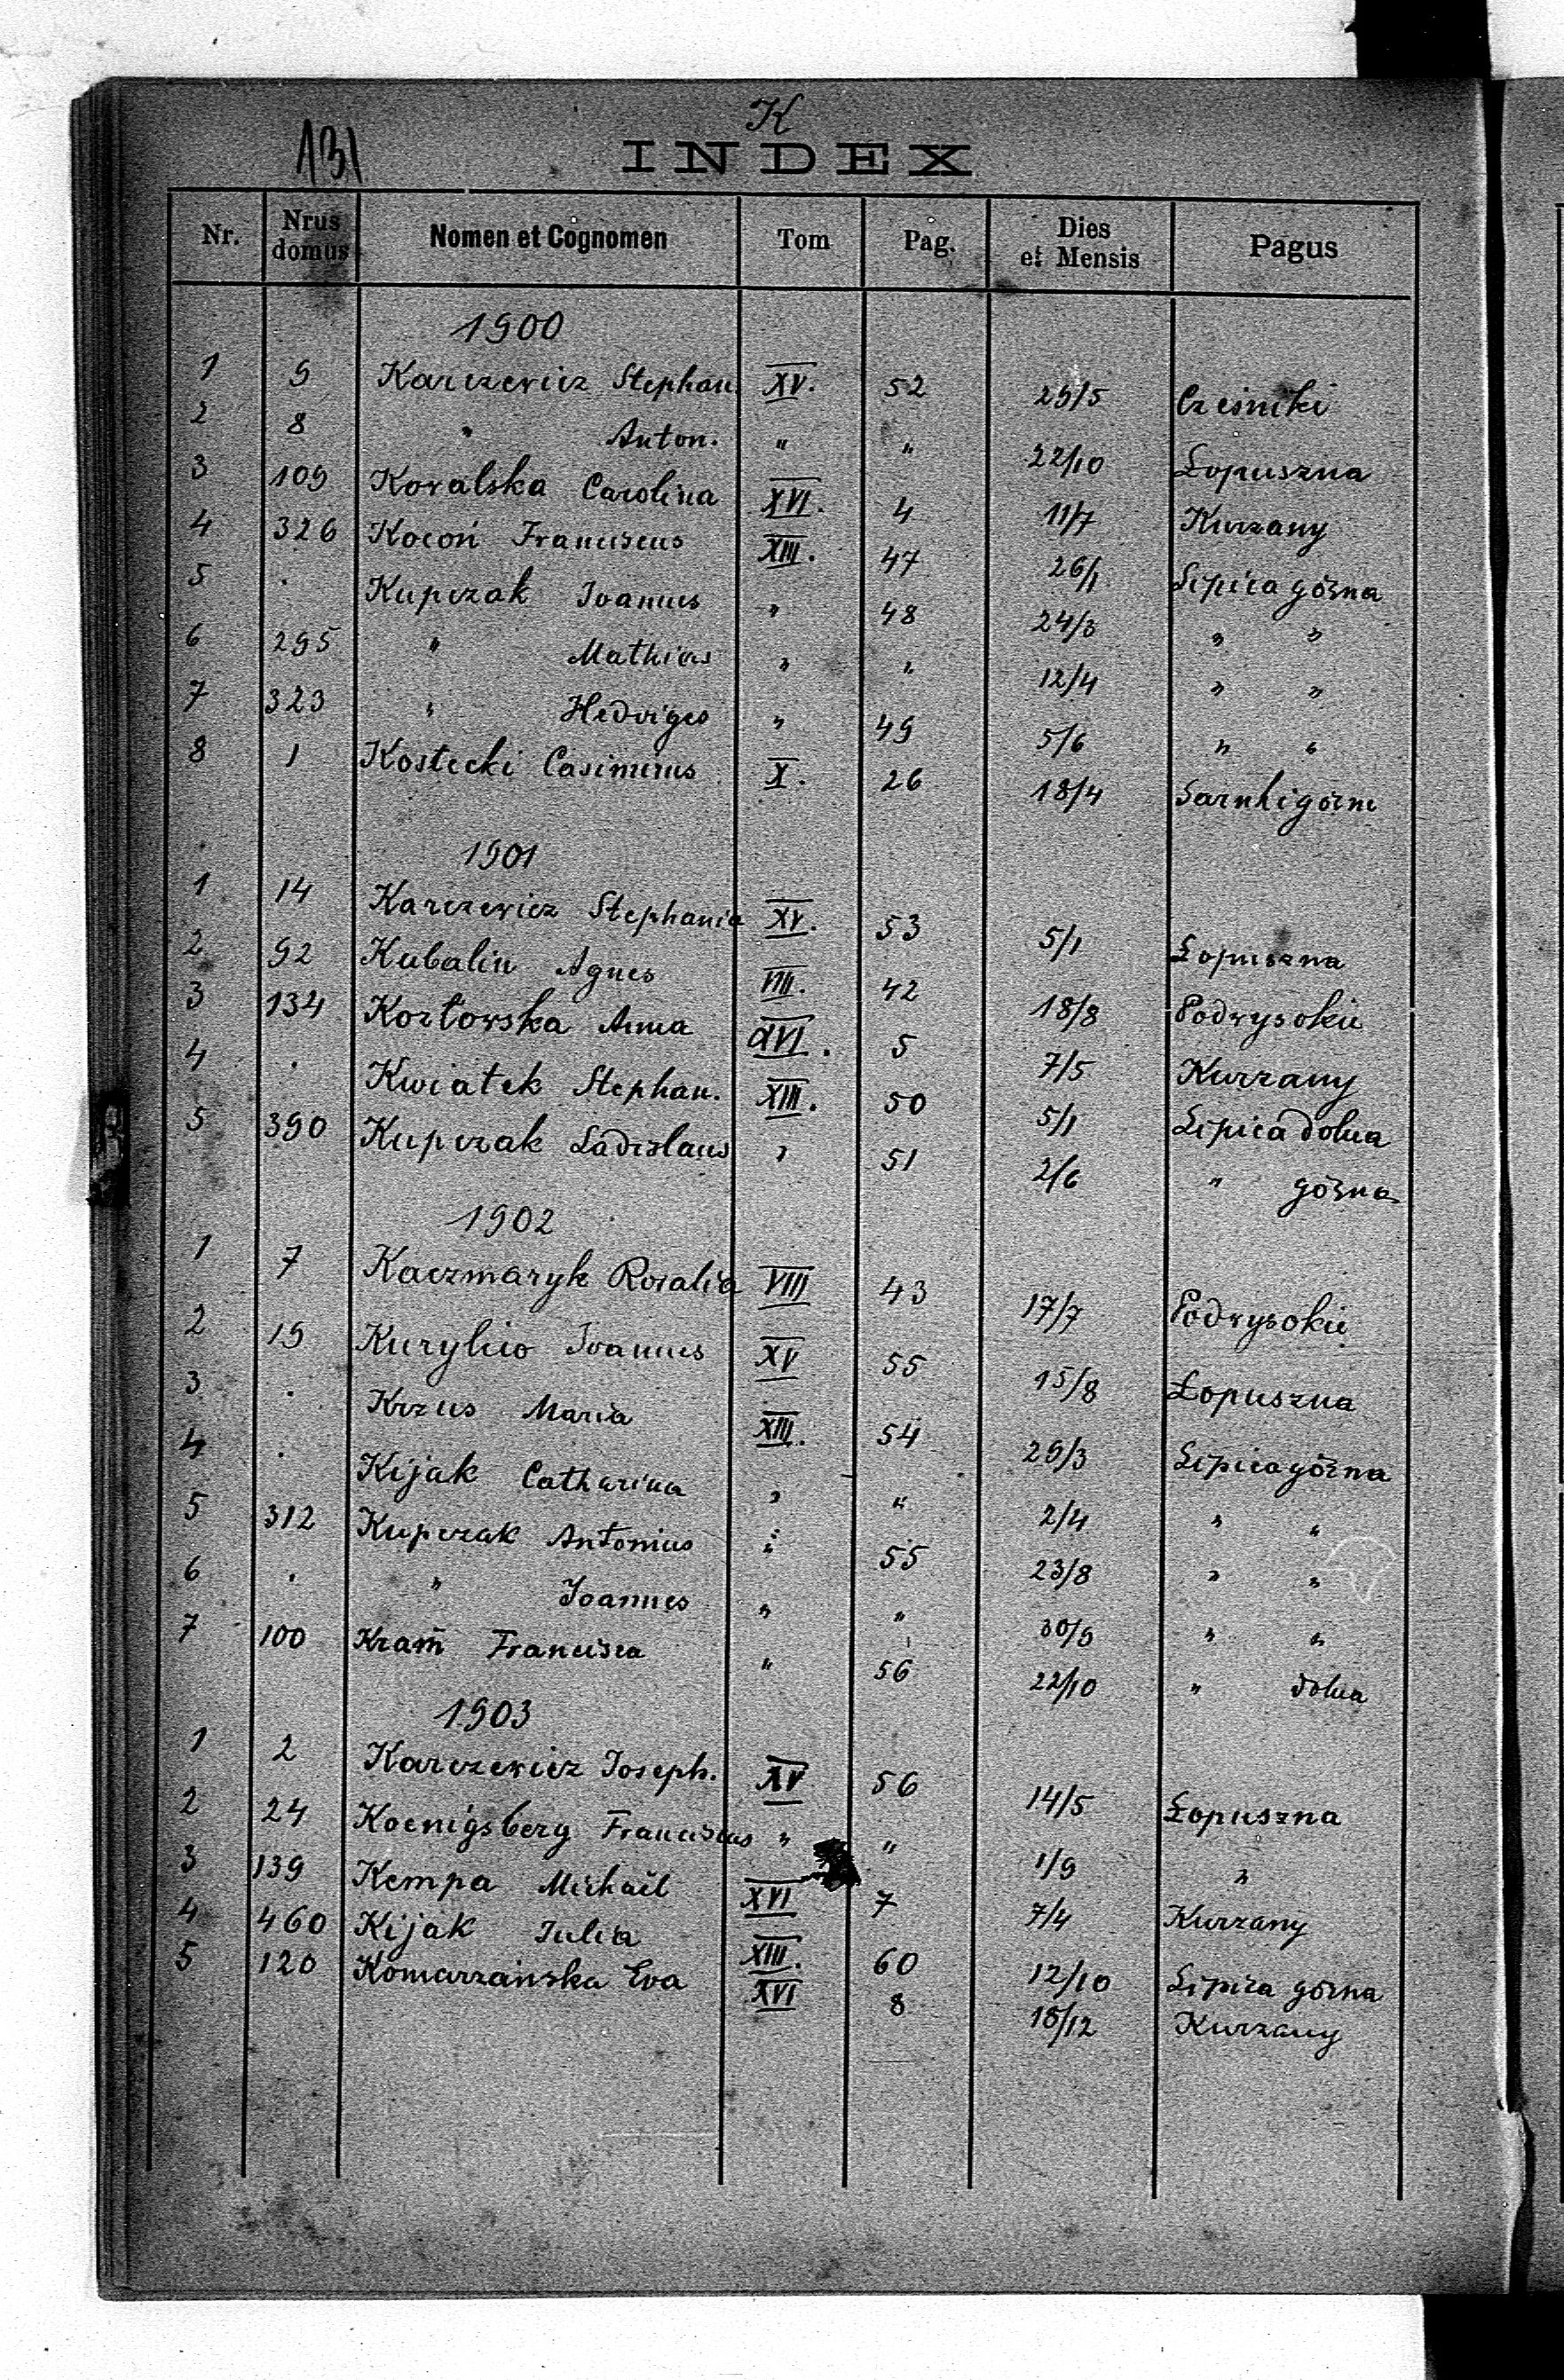 K
131
INDEX
Nr. Nrus domus Nomen et Cognomen Tom Pag. Dies et Mensis Pagus
1900
1 9 Karczewicz Stephan. XV. 52 29/5 Cześniki
2 8 " Anton. " " 22/10 Łopuszna
3 109 Kowalska Carolina XVI. 4 11/7 Kurzany
4 326 Kocoń Franciscus XIII. 47 26/1 Lipica górna
5 . Kupczak Joannes " 48 24/3 " "
6 295 " Mathias " " 12/4 " "
7 323 " Hedviges " 49 5/6 " "
8 1 Kostecki Casimirus X. 26 18/4 Sarnki górne
1901
1 14 Karczewicz Stephania XV. 53 5/1 Łopuszna
2 92 Kubalin Agnes VIII. 42 18/8 Podwysokie
3 134 Kozłowska Anna XVI. 5 7/5 Kurzany
4 . Kwiatek Stephan. XIII. 50 5/1 Lipica dolna
5 390 Kupczak Ladislaus " 51 2/6 " górna
1902
1 7 Kaczmaryk Rozalia VIII 43 17/7 Podwysokie
2 19 Joannes XV 55 15/8 Łopuszna
3 . Krzus Maria XIII. 54 29/3 Lipica górna
4 . Kijak Catharina " " 2/4 " "
5 312 Kupczak Antonius " 55 23/8 " "
6 . " Joannes " " 30/9 " "
7 100 Kram̄ Francisca " 56 22/10 " dolna
1903
1 2 Karczewicz Joseph. XV 56 14/5 Łopuszna
2 24 Koenigsberg Franciscus " " 1/9 "
3 139 Kempa Michaël XVI 7 7/4 Kurzany
4 460 Kijak Julia XIII. 60 12/10 Lipica górna
5 120 Komarzańska Eva XVI 8 18/12 Kurzany